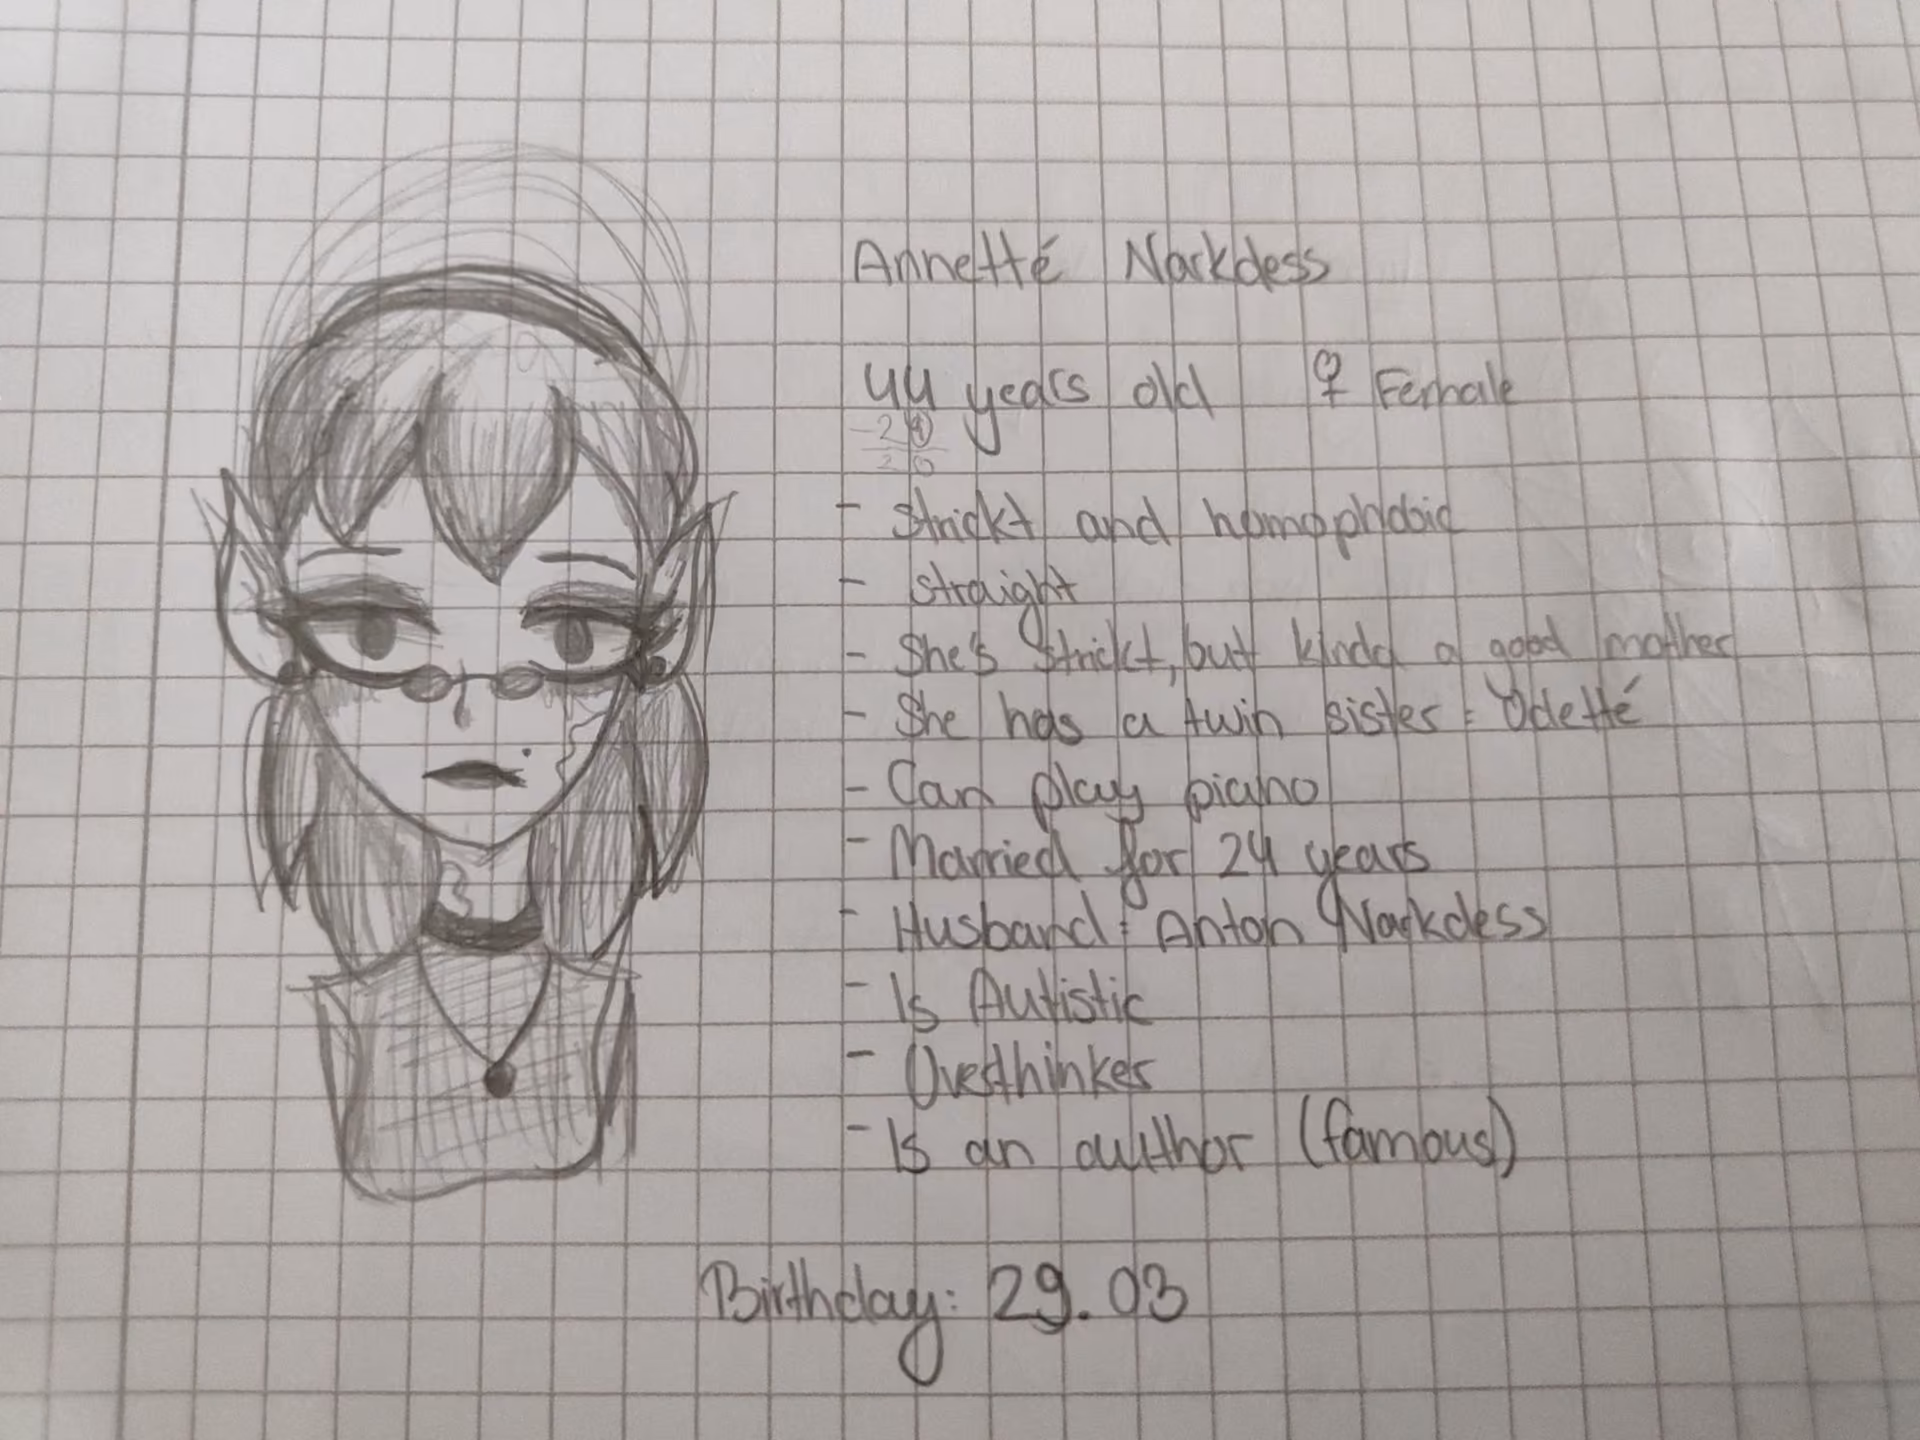 Annetté Narkdess
44 years old ♀ Female
-24
20
- Strickt and homophobic
- straight
- She's strickt, but kinda a good mother
- She has a twin sister: Odetté
- Can play piano
- Married for 24 years
- Husband: Anton Narkdess
- Is Autistic
- Overthinker
- Is an author (famous)
Birthday: 29.03